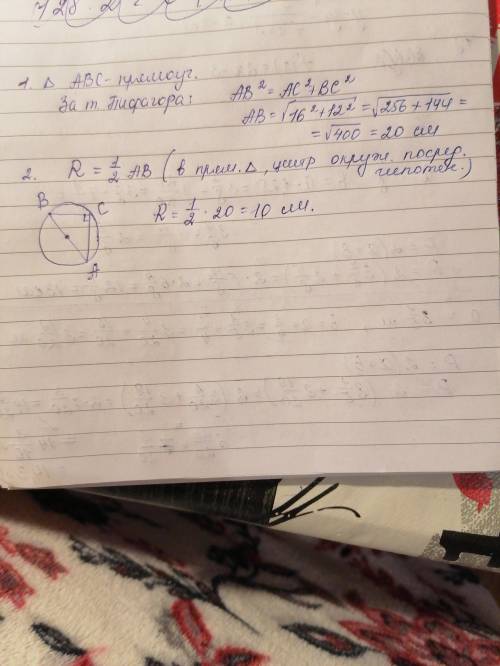 1. Δ ABC - прямоуг.
За т. Пифагора:
AB² = AC² + BC²
AB = √16² + 12² = √256 + 144 =
= √400 = 20 см
2. R = 1/2 AB (в прям. Δ, центр окруж. посред. гипотен.)
B
C
A
R = 1/2 · 20 = 10 см.